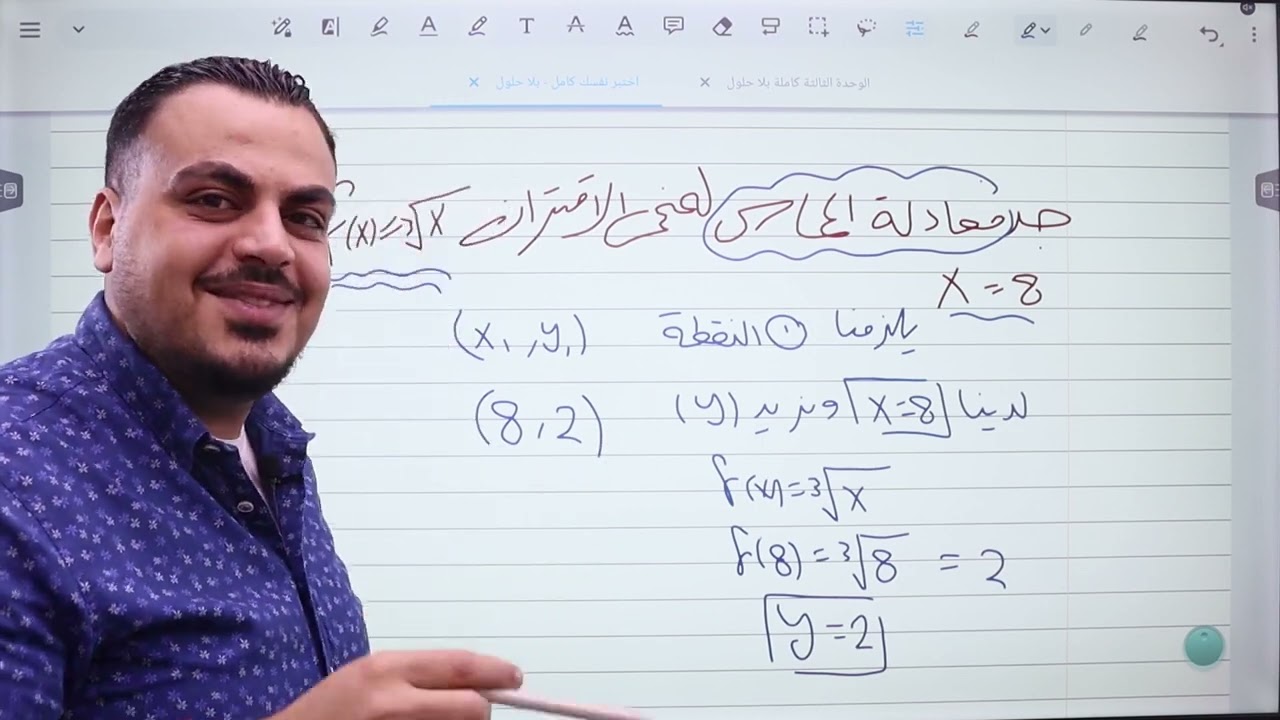 اختبر نفسك كامل - بلا حلول
الوحدة الثالثة كاملة بلا حلول
جد معادلة المماس لمنحنى الاقتران f(x)=∛x
x = 8
يلزمنا ① النقطة (x₁, y₁)
لدينا x=8 ونريد (y) (8, 2)
f(x) = ∛x
f(8) = ∛8 = 2
y = 2